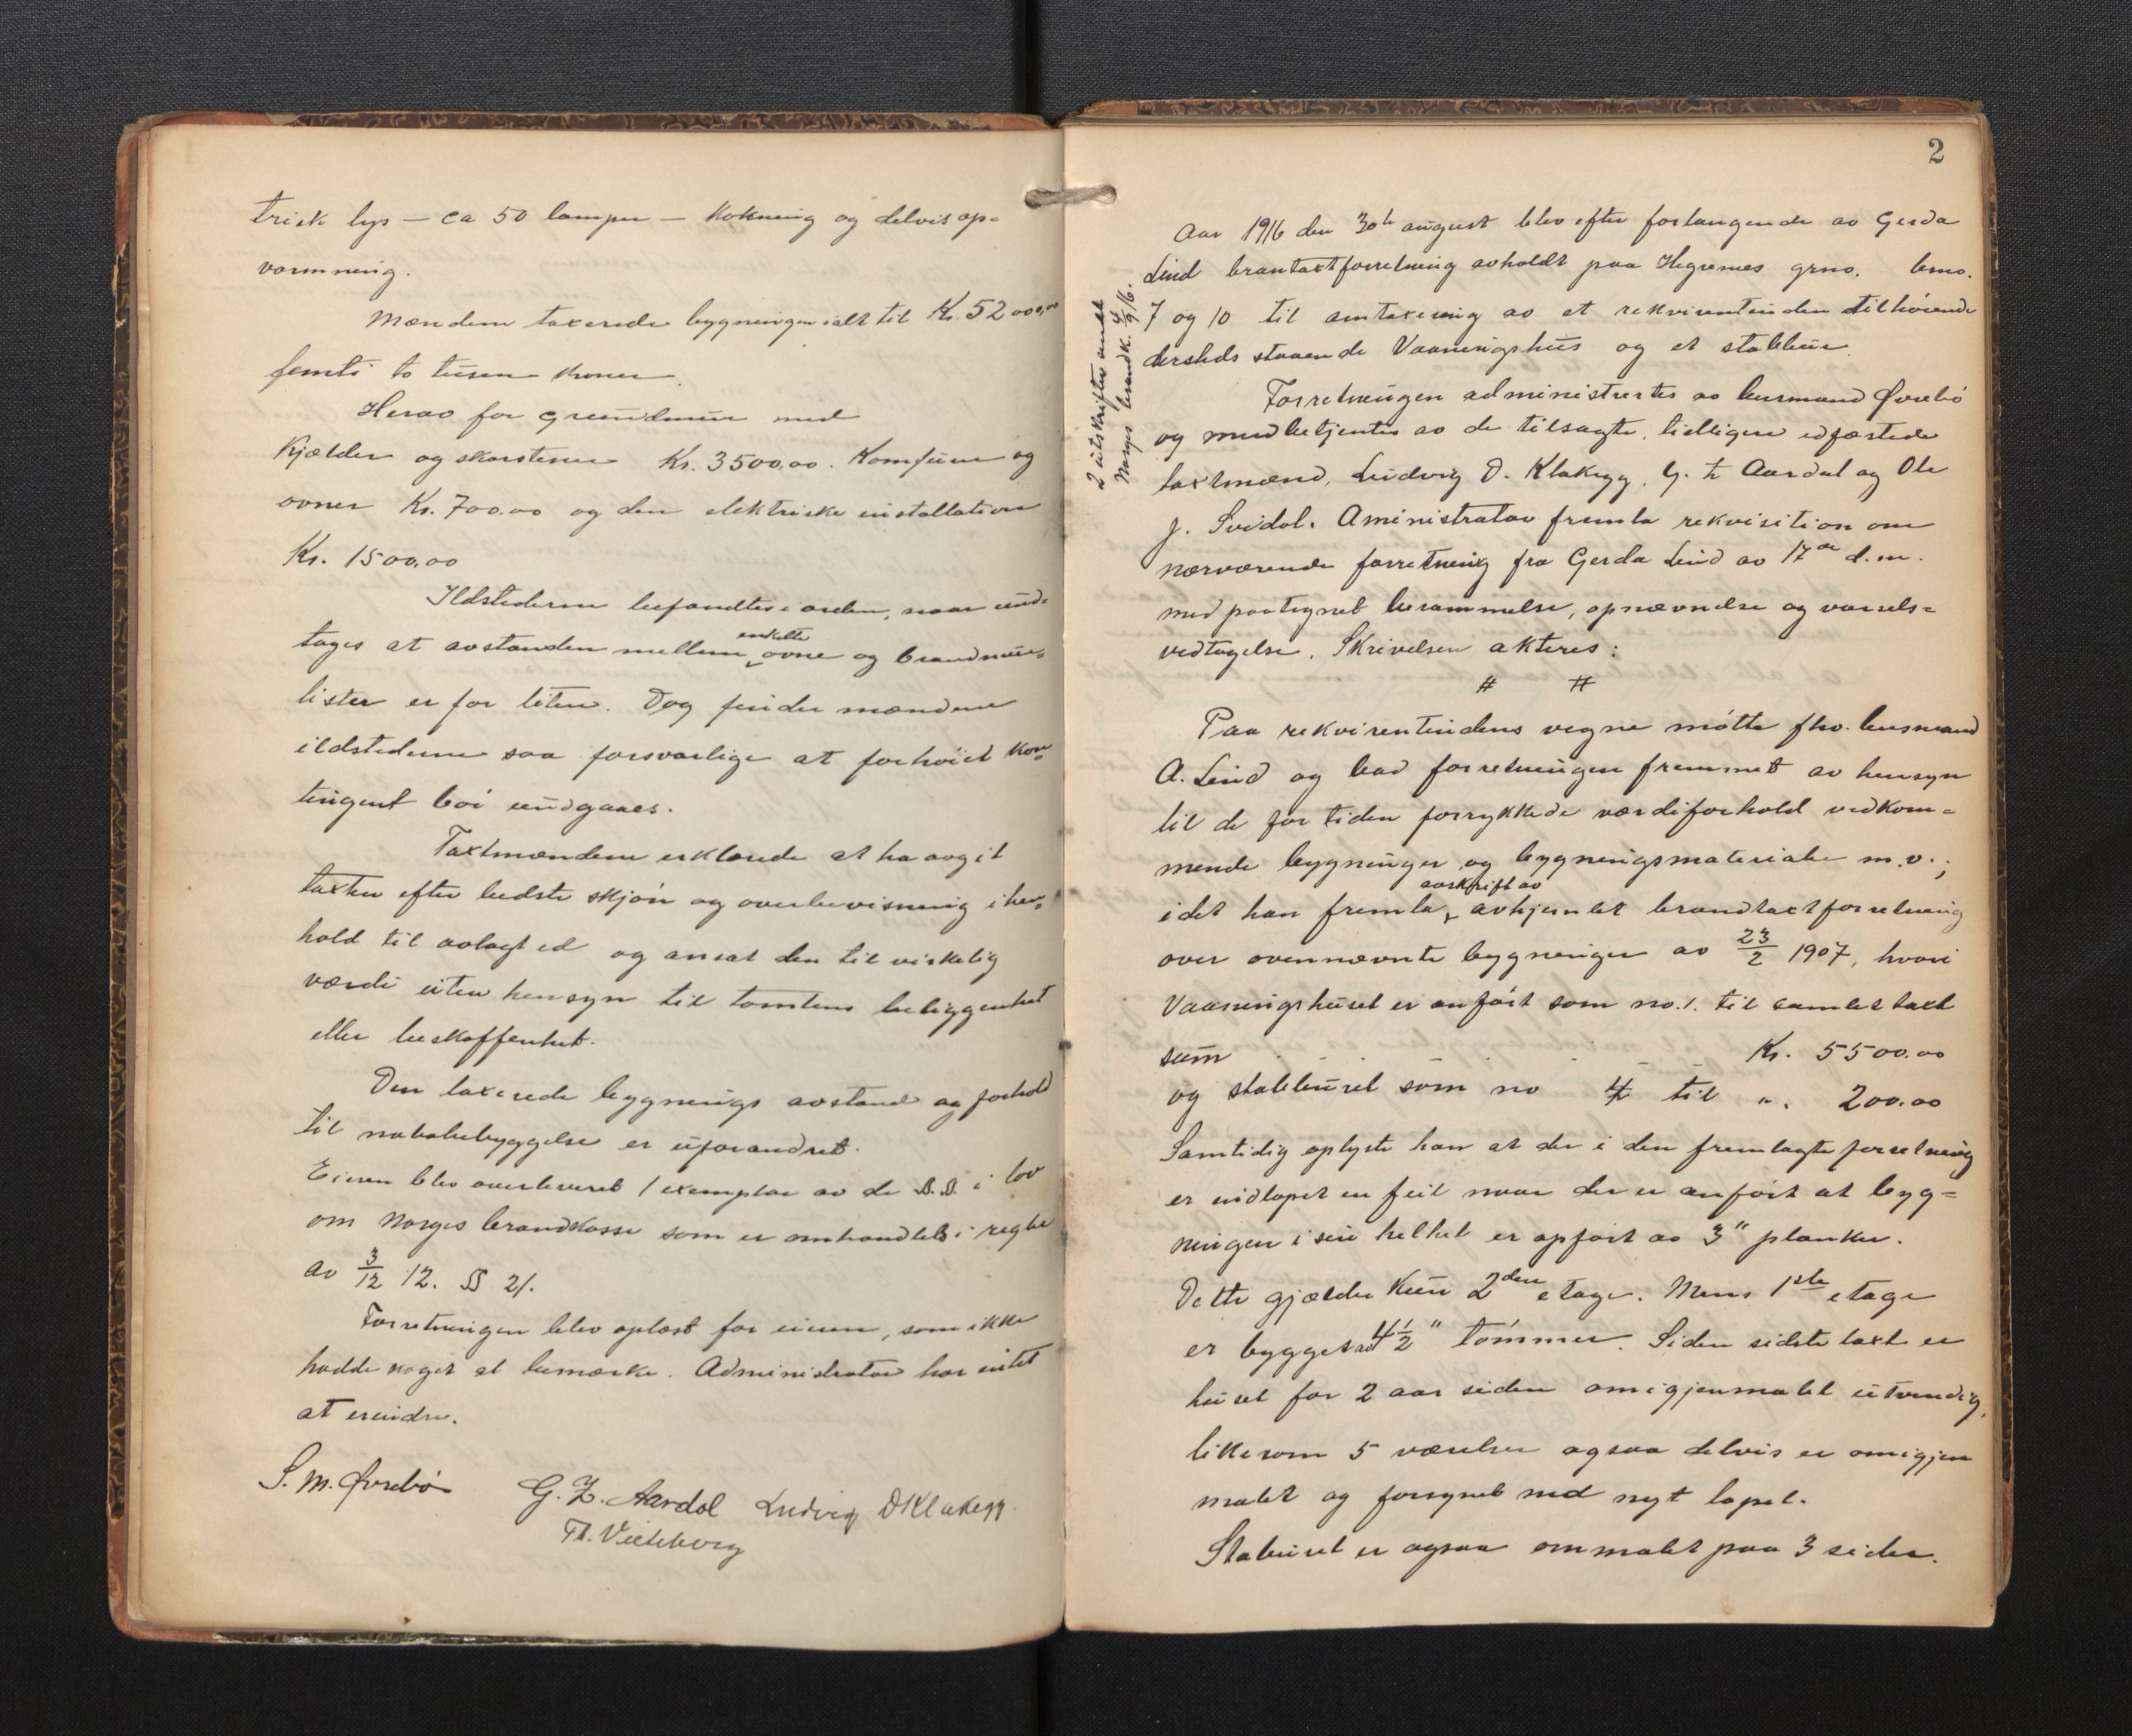 trisk lys – ca 50 lamper – kokning og delvis op-
varmning.
Mændene taxerede bygningen ialt til Kr. 52 000,00
femti to tusen kroner.
Herav for grundmur med
kjælder og skorstener Kr. 3500,00. Komfurer og
ovner Kr. 700.00 og den elektriske installation
Kr. 1500,00
Ildstederne befandtes i orden, naar und-
tages at avstanden mellem enkelte ovne og brandmur-
lister er for liten. Dog finder mændene
ildstederne saa forsvarlige at forhöiet kon-
tingent bör undgaaes.
Taxtmændene erklærede at ha avgit
taxten efter bedste skjön og overbevisning i hen-
hold til avlagt ed og ansat den til virkelig
værdi uten hensyn til tomtens beliggenhet
eller beskaffenhet.
Den taxerede bygnings avstand og forhold
til nabobebyggelse er uforandret.
Eieren blev overleveret 1 exemplar av de §.§. i lov
om Norges brandkasse som er omhandlet i regler
av 3/12 12. §§ 21.
Forretningen blev oplæst for eieren, som ikke
hadde noget at bemærke. Administrator har intet
at erindre.
S. M. Øvrebö G. Z. Aardal Ludvig D Klakegg.
2
2 utskrifter sendt
Norges brandk. 4/9 16.
Aar 1916 den 30te august blev efter forlangende av Gerda
Lind brantaxtforretning avholdt paa Hegrenes grno. brno.
7 og 10 til omtaxering av et rekvirentinden tilhörende
dersteds staaende Vaaningshus og et stabbur.
Forretningen administrertes av lensmand Øvrebö
og medbetjentes av de tilsagte, tidligere edfæstede
taxtmænd, Ludvig D. Klakegg, G. Z. Aardal og Ole
J. Svidal. Aministrator fremla rekvisition om
nærværende forretning fra Gerda Lind av 17de d.m.
med paategnet berammelse, opnævnelse og varsels-
vedtagelse. Skrivelsen akteres:
# #
Paa rekvirentindens vegne mötte fhv. lensmand
A. Lind og bad forretningen fremmet av hensyn
til de for tiden forrykkede værdiforhold vedkom-
mende bygninger og bygningsmateriale m.v.;
idet han fremla avskrift av avhjemlet brandtaxtforretning
over ovennævnte bygninger av 23/2 1907, hvori
Vaaningshuset er anfört som no. 1. til samlet taxt
sum Kr. 5500.00
og stabburet som no 4 til ". 200.00
Samtidig oplyste han at der i den fremlagte forretning
er indlöpet en feil naar der er anfört at byg-
ningen i sin helhet er opfört av 3" planker.
Dette gjælder kun 2den etage. Mens 1ste etage
er bygget av 4 1/2 " tömmer. Siden sidste taxt er
huset for 2 aar siden omigjenmalet utvendig,
likesom 5 værelser ogsaa delvis er omigjen
malet og forsynet med nyt tapet.
Staburet er ogsaa ommalet paa 3 sider.